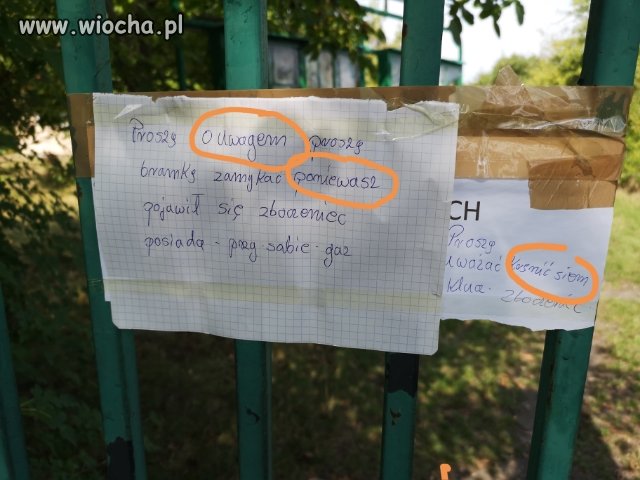 www.wiocha.pl
Proszę o uwagem proszę
bramkę zamykać poniewasz
pojawił się zboczeniec
posiada - przy sabie - gaz
CH
Proszę
uważać
klucz. zboczeniec